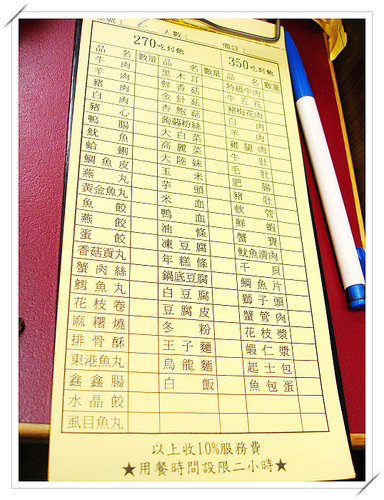 人數：
備註：
270吃到飽
350吃到飽
品名 數量
牛肉
羊肉
豬肉
白肉
豬心
鴨腸
魷魚
蛤蜊
鯛魚皮
燕丸
黃金魚丸
魚餃
燕餃
蛋餃
香菇貢丸
蟹肉絲
鱈魚丸
花枝卷
麻糬燒
排骨酥
東港魚丸
鑫鑫腸
水晶餃
虱目魚丸
品名 數量
黑木耳
鮮香菇
金針菇
杏鮑菇
蒟蒻粉絲
大白菜
高麗菜
大陸妹
玉米
芋頭
米血
鴨血
油條
凍豆腐
年糕條
鍋底豆腐
白豆腐
豆腐皮
冬粉
王子麵
烏龍麵
白飯
品名 數量
特級牛肉
牛五花
豬梅花肉
白肉
羊肉
雞腿肉
牛肚
毛肚
肥腸
豬肚
軟管
鮮蝦
蟹寶
魷魚清肉
干貝
鯛魚片
獅子頭
蟹管肉
花枝漿
蝦仁漿
起士包
魚包蛋
以上收10%服務費
★用餐時間設限二小時★